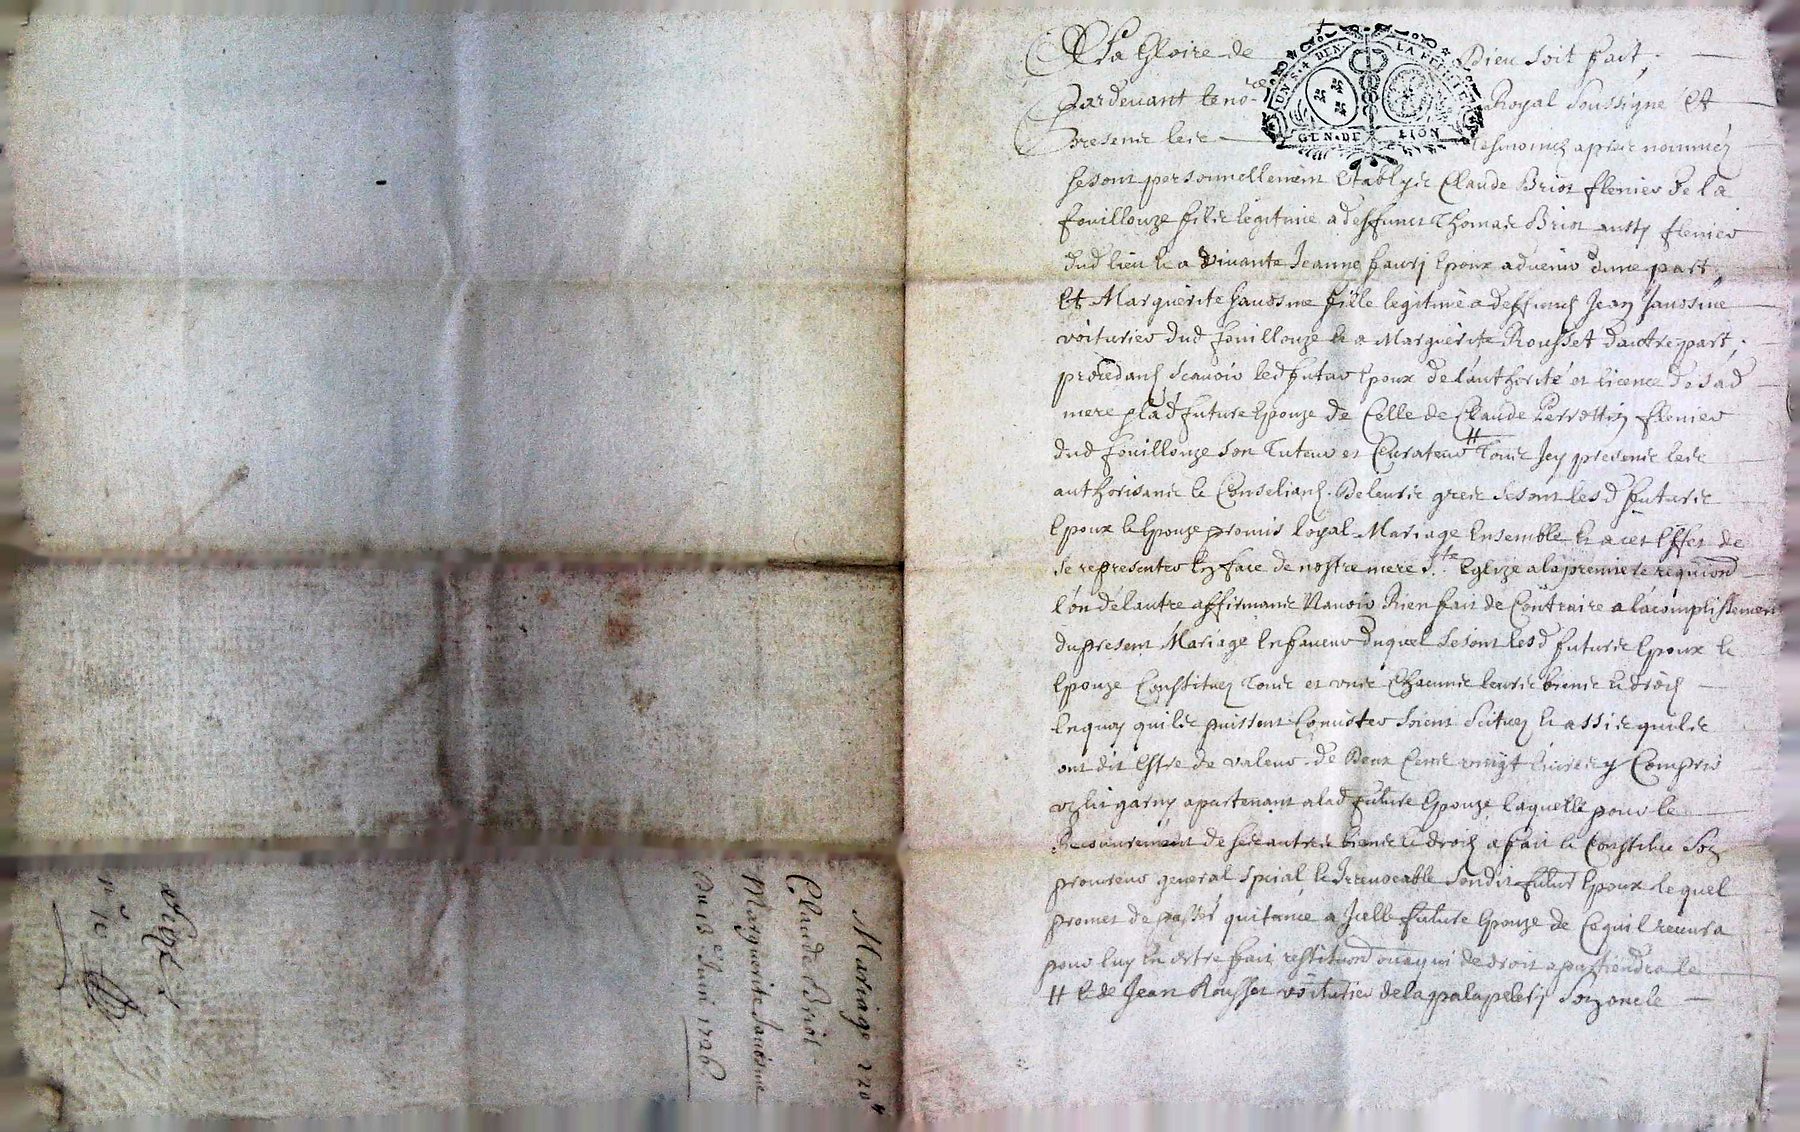 A La Gloire de Dieu soit fait,
Pardevant le no.re Royal soussigné Et
Presents les tesmoings apres nommés
se sont personnellement Etablys Claude Briot flenier de la
fouillouze fils legitime a deffunct Thomas Briot aussy flenier
dud lieu & a vivante Jeanne faury Epoux advenir dune part,
Et Marguerite Jausme fille legitime a deffunct Jean Jausme
voiturier dud fouillouze & a Marguerite Rousset dautre part,
procedants scavoir led futur Epoux de l'authorité et licence de sad
mere & lad future Epouze de Celle de Claude Perrottin flenier
dud fouillouze son Tuteur et Curateur # Tous Icy presents les
authorisants & Conseliants. De leurs grés se sont lesd futurs
Epoux & Epouze promis loyal Mariage Ensemble & a cet Effet de
se representer En face de nostre mere S.te Eglize a la premiere requisi.on
l'on de l'autre affirmants Navoir Rien fait de Contraire a lacomplissement
du present Mariage En faveur duquel se sont lesd futurs Epoux &
Epouze Constitués Tous et uns Chacuns leurs biens & droits
En quoy quils puissent Concister soient scitués & assis quils
ont dit Estre de valeur de Deux Cents vingt livres y Compris
garny apartenant a lad future Epouze, laquelle pour le
Recouvrement de ses autres biens & droits a fait & Constitué son
procureur general special & Irrevocable sondit futur Epoux lequel
promet de passer quitance a Icelle future Epouze de Ce quil recevra
pour luy En estre fait restitu.on ou a qui de droit apartiendra &
# & de Jean Rousset voiturier de la son oncle
UN S. 4 DEN. LA FEUILLE
GEN. DE LION
Mariage 220 #
Claude Briot
Marguerite Jausme
Du 13.e Juin 1726